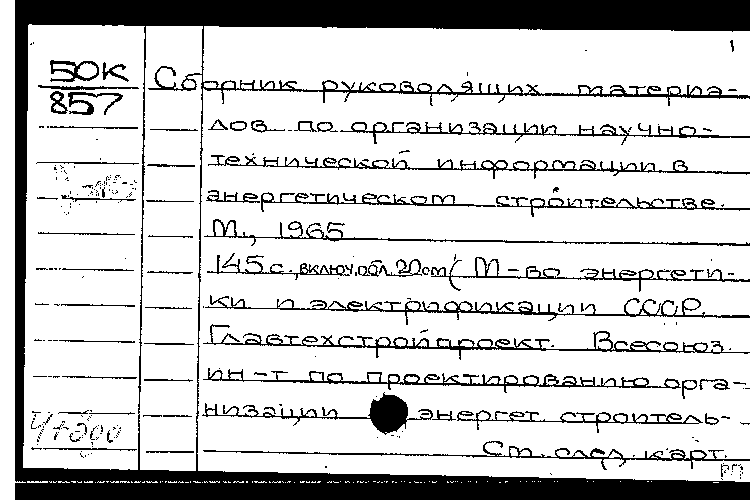 1
50К
857
Сборник руководящих материа-
лов по организации научно-
технической информации в
энергетическом строительстве.
М., 1965
145 с., включ. обл. 20 см (М-во энергети-
ки и электрификации СССР.
Главтехстройпроект. Всесоюз.
ин-т по проектированию орга-
низации энергет. строитель-
Ст. след. карт.
РП